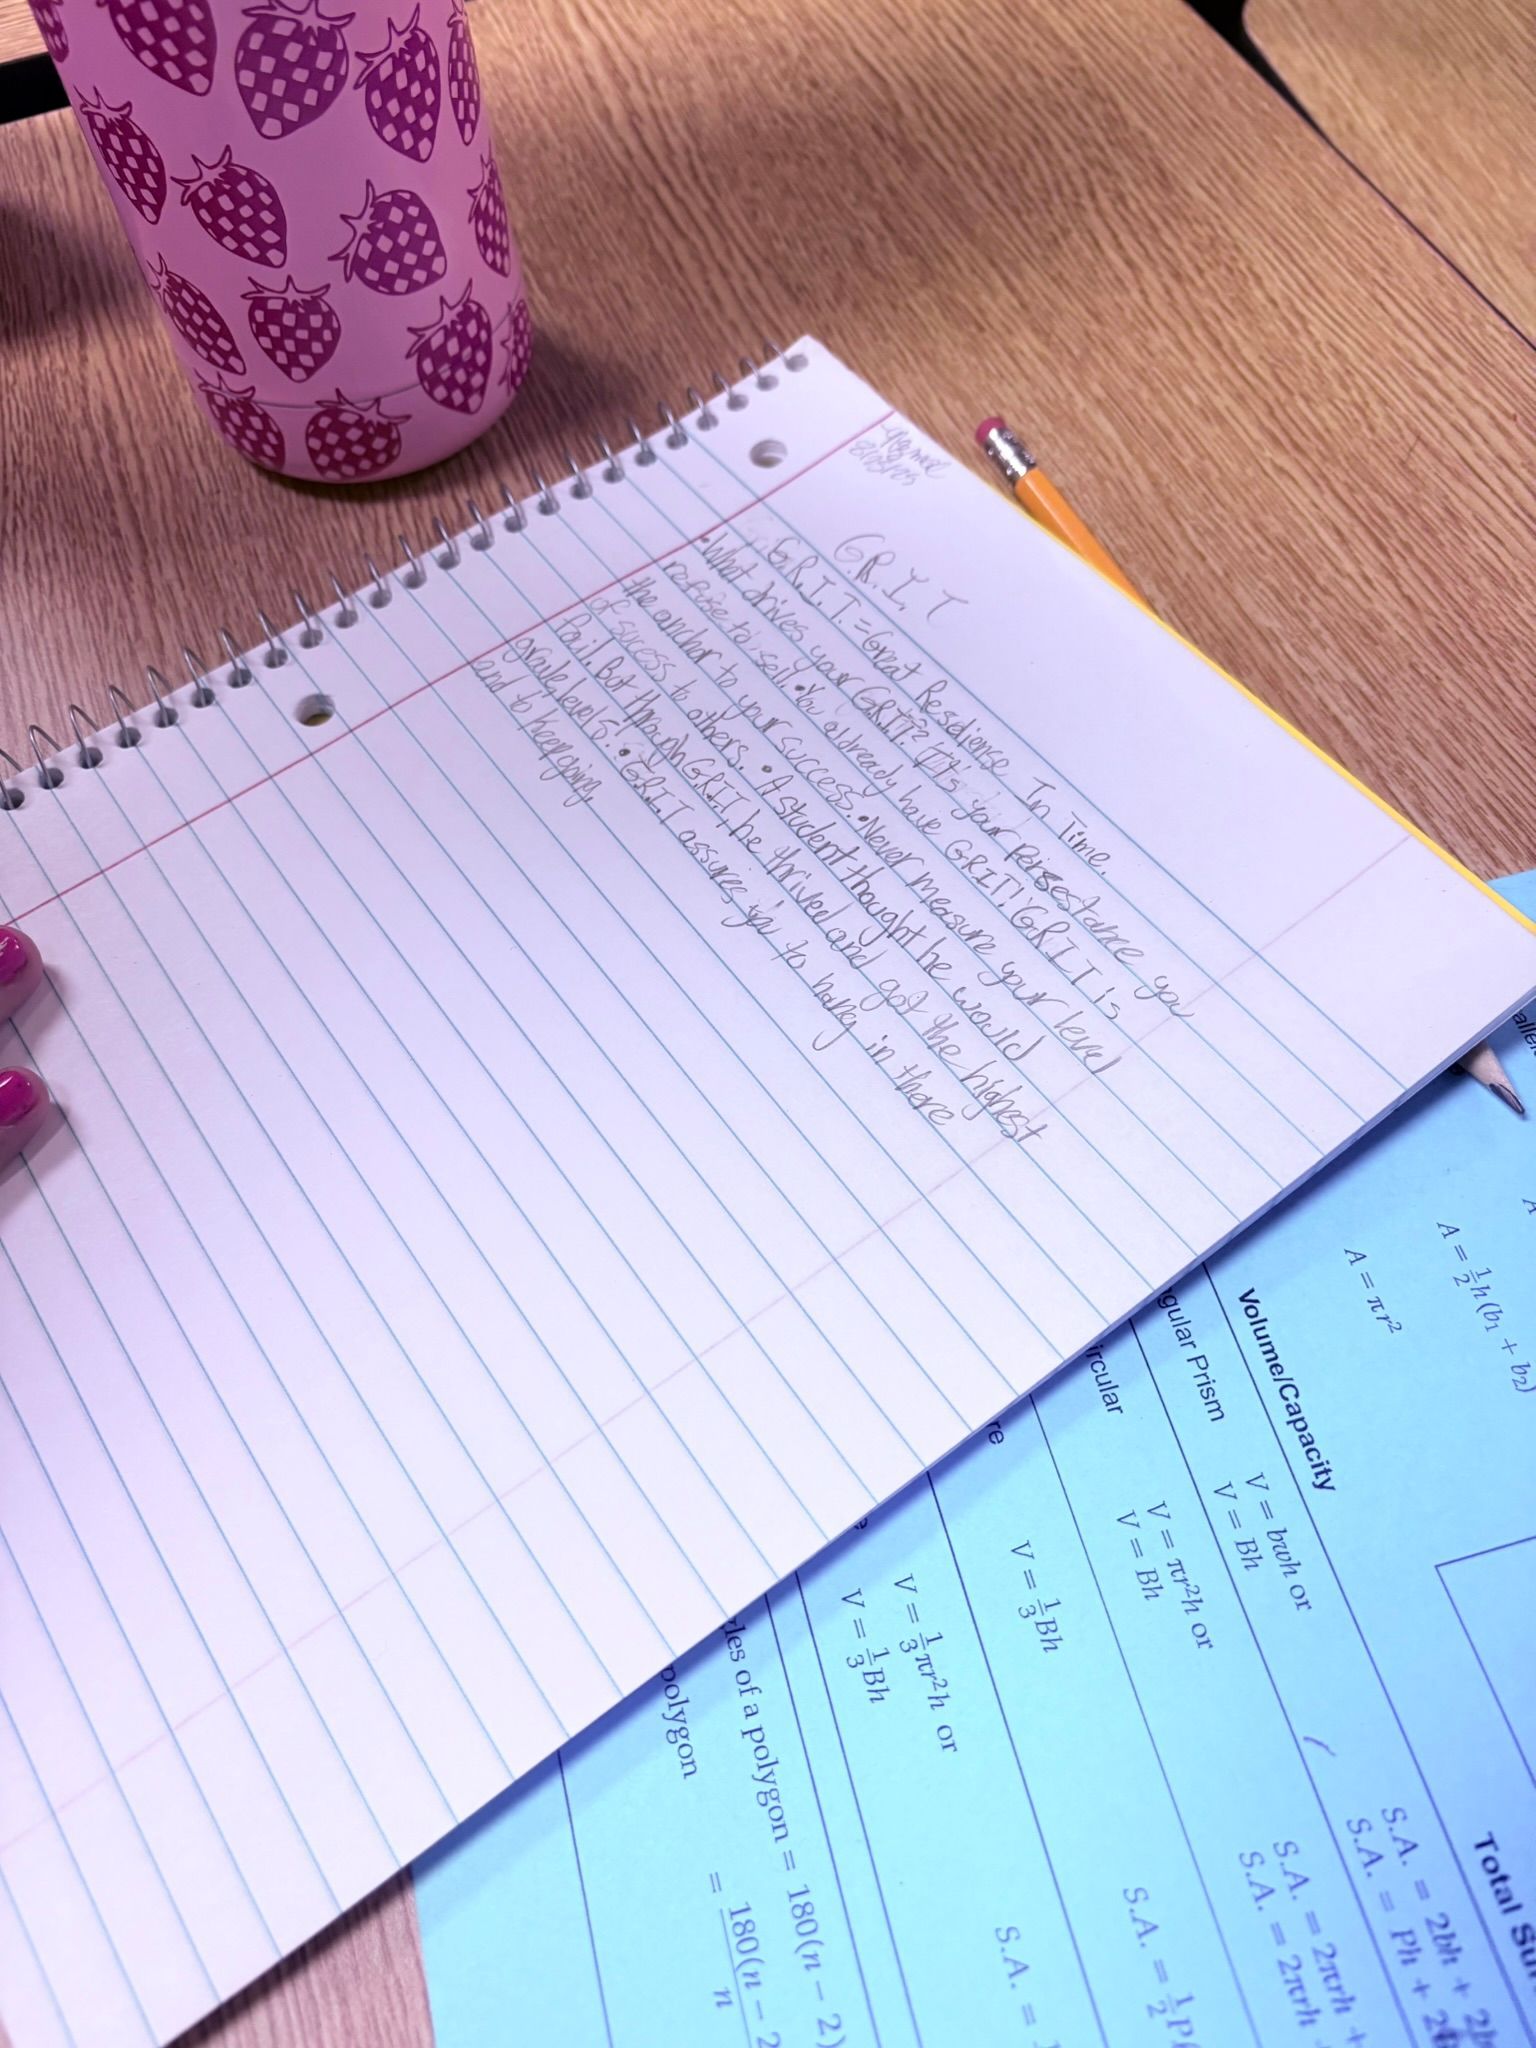 G.R.I.T
G.R.I.T.=Great Resediense In Time.
•What drives your G.R.I.T? It's your Persestance you
refuse to sell.•You already have GRIT! GRIT is
the anchor to your success.•Never measure your level
of sucess to others. •A student thought he would
fail. But through G.R.I.T, he thrived and got the highest
grade levels. •G.R.I.T assures you to hang in there
and to keep going.
A = 1/2 h(b1 + b2)
A = πr²
Volume/Capacity
gular Prism V = bwh or
V = Bh
ircular V = πr²h or
V = Bh
re V = 1/3 Bh
V = 1/3 πr²h or
V = 1/3 Bh
les of a polygon = 180(n − 2)
polygon = 180(n − 2
n
Total Sur
S.A. = 2bh + 2b
S.A. = Ph + 2
S.A. = 2πrh +
S.A. = 2πrh
S.A. = 1/2 P
S.A. =